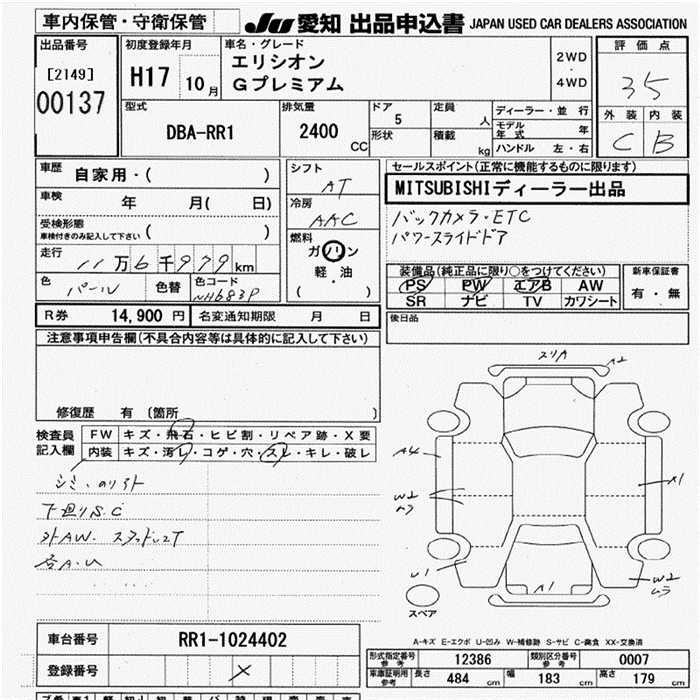 車内保管・守衛保管
JU 愛知 出品申込書 JAPAN USED CAR DEALERS ASSOCIATION
出品番号
[2149]
00137
初度登録年月
H17 10月
車名・グレード
エリシオン
Gプレミアム
2WD
・
4WD
評価点
35
外装 内装
C B
型式
DBA-RR1
排気量
2400 CC
ドア
5
形状
定員
人
積載
kg
ディーラー・並行
モデル年式 年
ハンドル 左・右
車歴
自家用・( )
車検
年 月( 日)
受検形態
車検付きのみ記入して下さい ( )
走行
11万6千979km
色
パール
色替
色コード
NH683P
シフト
AT
冷房
AAC
燃料
ガソリン
軽・油
( )
セールスポイント(正常に機能するものに限ります)
MITSUBISHIディーラー出品
バックカメラ・ETC
パワースライドドア
装備品(純正品に限り○をつけてください)
PS PW エアB AW
SR ナビ TV カワシート
新車保証書
有・無
後日品
R券 14,900 円
名変通知期限 月 日
注意事項申告欄(不具合内容等は具体的に記入して下さい)
修復歴 有 〔箇所 〕
検査員記入欄
FW キズ・飛石・ヒビ割・リペア跡・X要
内装 キズ・汚レ・コゲ・穴・スレ・キレ・破レ
下廻りS.C
外AW. スタッドレスT
各A.U
スリA
A2
A4
W2
ムラ
U1
A1
X1
W2
ムラ
スペア
A-キズ E-エクボ U-凹み W-補修跡 S-サビ C-腐食 XX-交換済
車台番号 RR1-1024402
登録番号 X
形式指定番号 参考 12386
類別区分番号 参考 0007
車庫証明用 参考 長さ 484 cm 幅 183 cm 高さ 179 cm